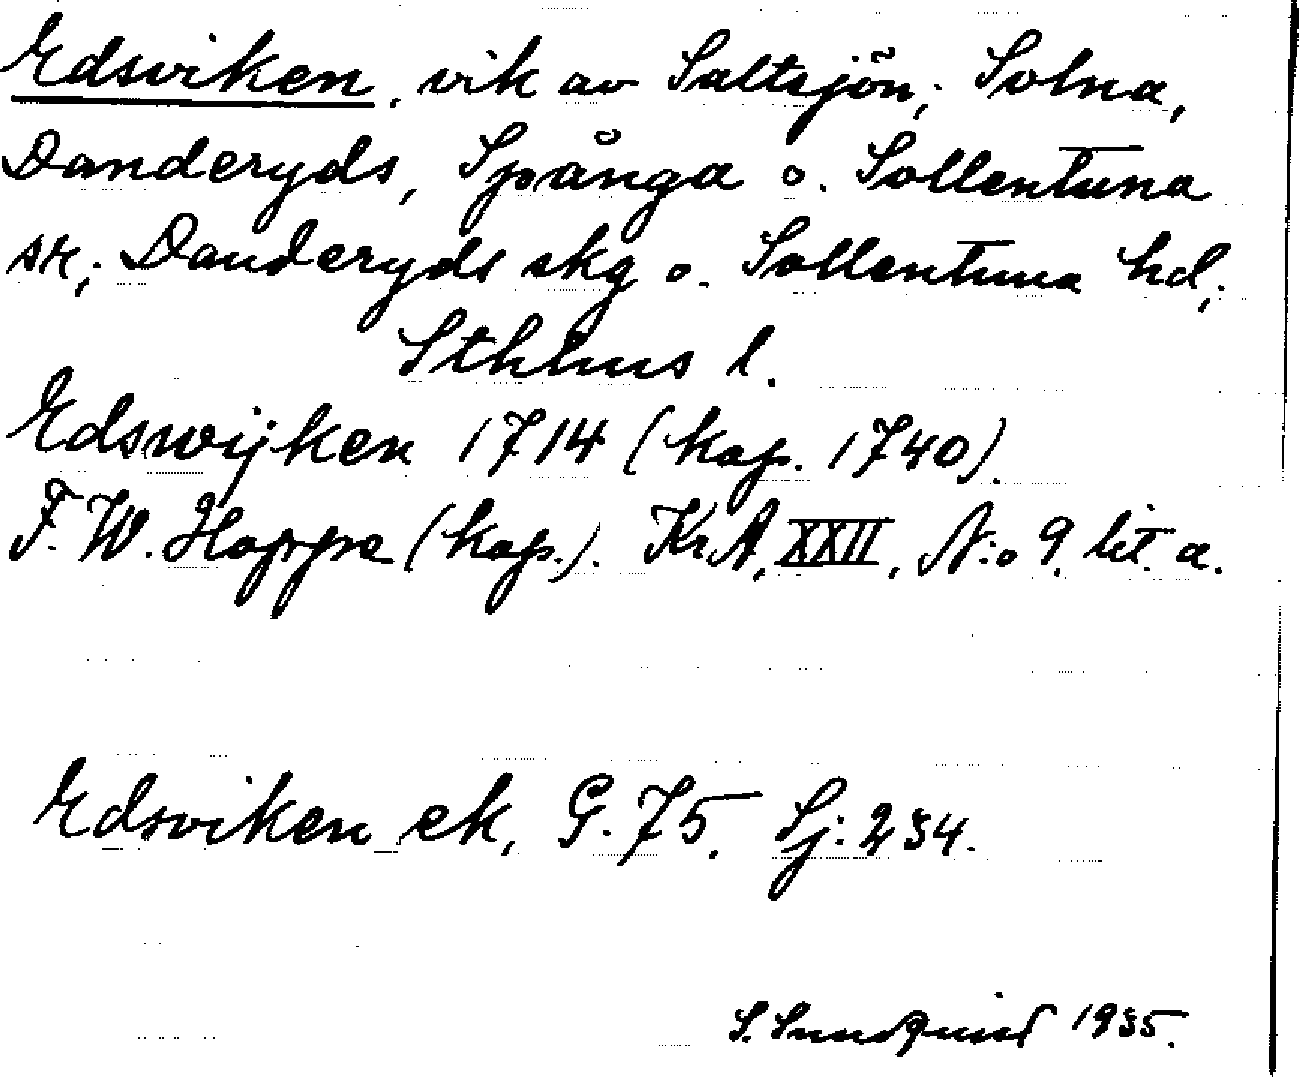 Edsviken, vik av Saltsjön; Solna,
Danderyds, Spånga o. Sollentuna
sn; Danderyds skg o. Sollentuna hd;
Sthlms l.
Edswijken 1714 (kop. 1740).
F. W. Hoppe (kop.). KrA, XXII, N:o 9. lit. a.
Edsviken ek, G. 75. Sj: 234.
S. Sundquist 1935.